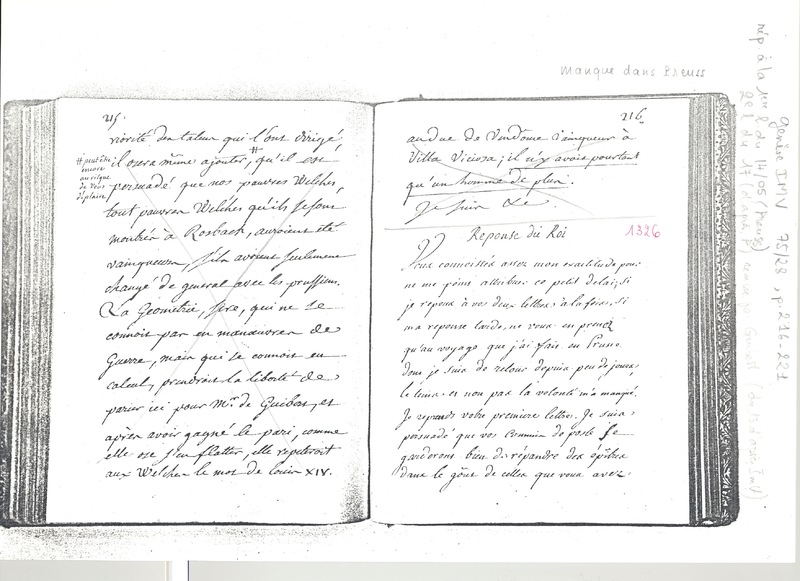 Manque dans Preuss
215.
riorité des talens qui l'ont dirigé,
il osera même ajouter,# qu'il est
# peut être
encore
au risque
de vous
déplaire
persuadé que nos pauvres Welches,
tout pauvres Welches qu'ils se sont
montrés à Rosbach, auroient été
vainqueurs, s'ils avoient seulement
changé de general avec les prussiens.
La Geometrie, Sire, qui ne se
connoit pas en manœuvres de
Guerre, mais qui se connoit en
calcul, prendroit la liberté de
parier ici pour Mr. de Guibert, et
après avoir gagné le pari, comme
elle ose s'en flatter, elle repeteroit
aux Welches le mot de Louis XIV.
216.
au duc de Vendôme vainqueur à
Villa Viciosa; il n'y avoit pourtant
qu'un homme de plus.
Je suis &c.
Reponse du Roi
1326
Vous connoissés assez mon exactitude pour
ne me point attribuer ce petit delai; si
je repons à vos deux lettres à la fois, si
ma reponse tarde, ne vous en prenez
qu'au voyage que j'ai fait en Prusse
dont je suis de retour depuis peu de jours.
le tems et non pas la volonté m'a manqué.
Je reprends votre premiere lettre. Je suis
persuadé que vos Commis de poste se
garderont bien de répandre des épîtres
dans le goût de celles que vous avez
Genève IMV 75/28, p. 216-221
rép à la 1ère l du 14/05 (Preuss)